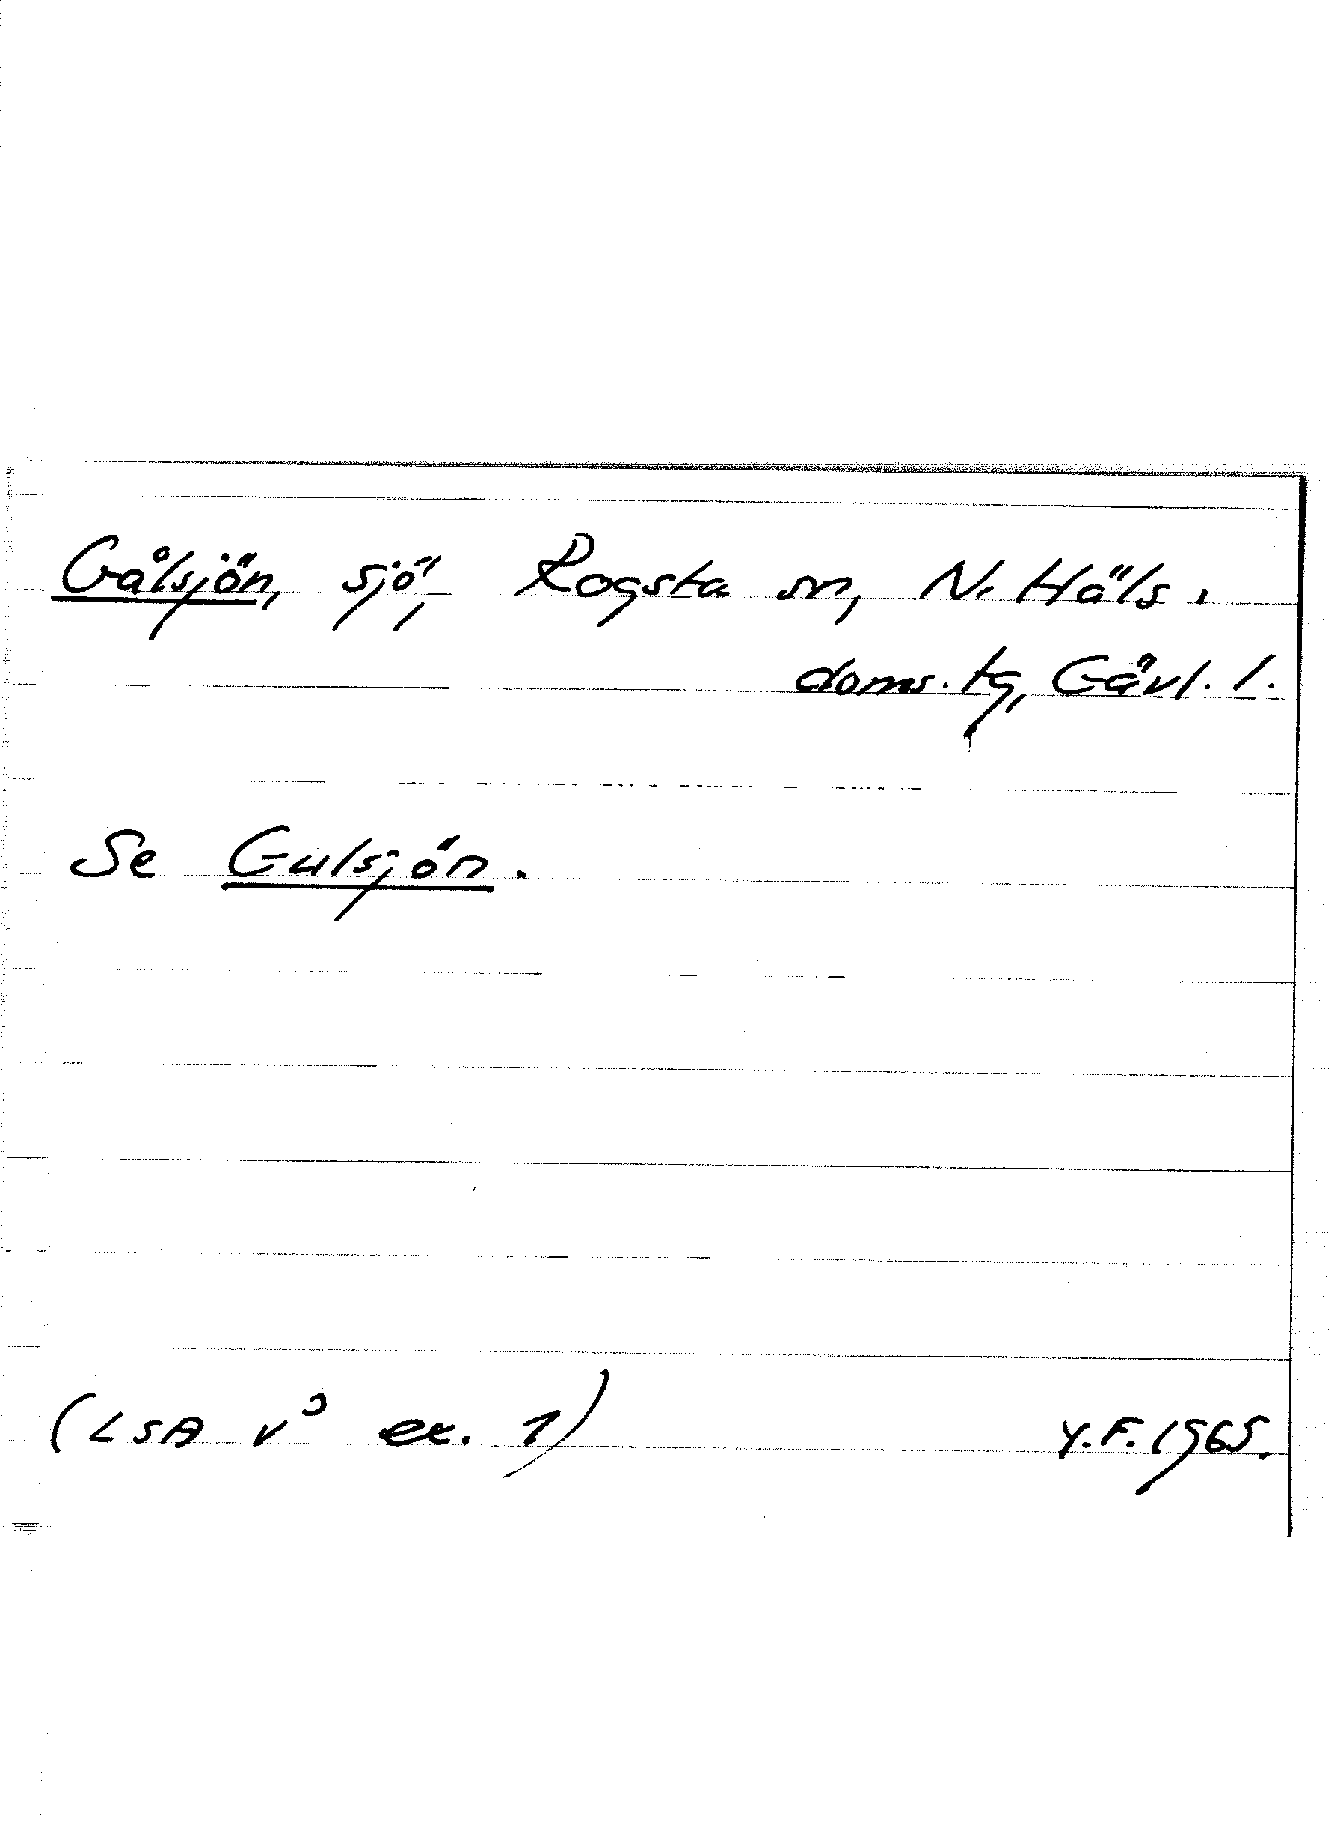 Gålsjön, sjö, Rogsta sn, N. Häls.
doms. tg, Gävl. l.
Se Gulsjön.
(LSA v³ ex. 1) Y.F. 1965.